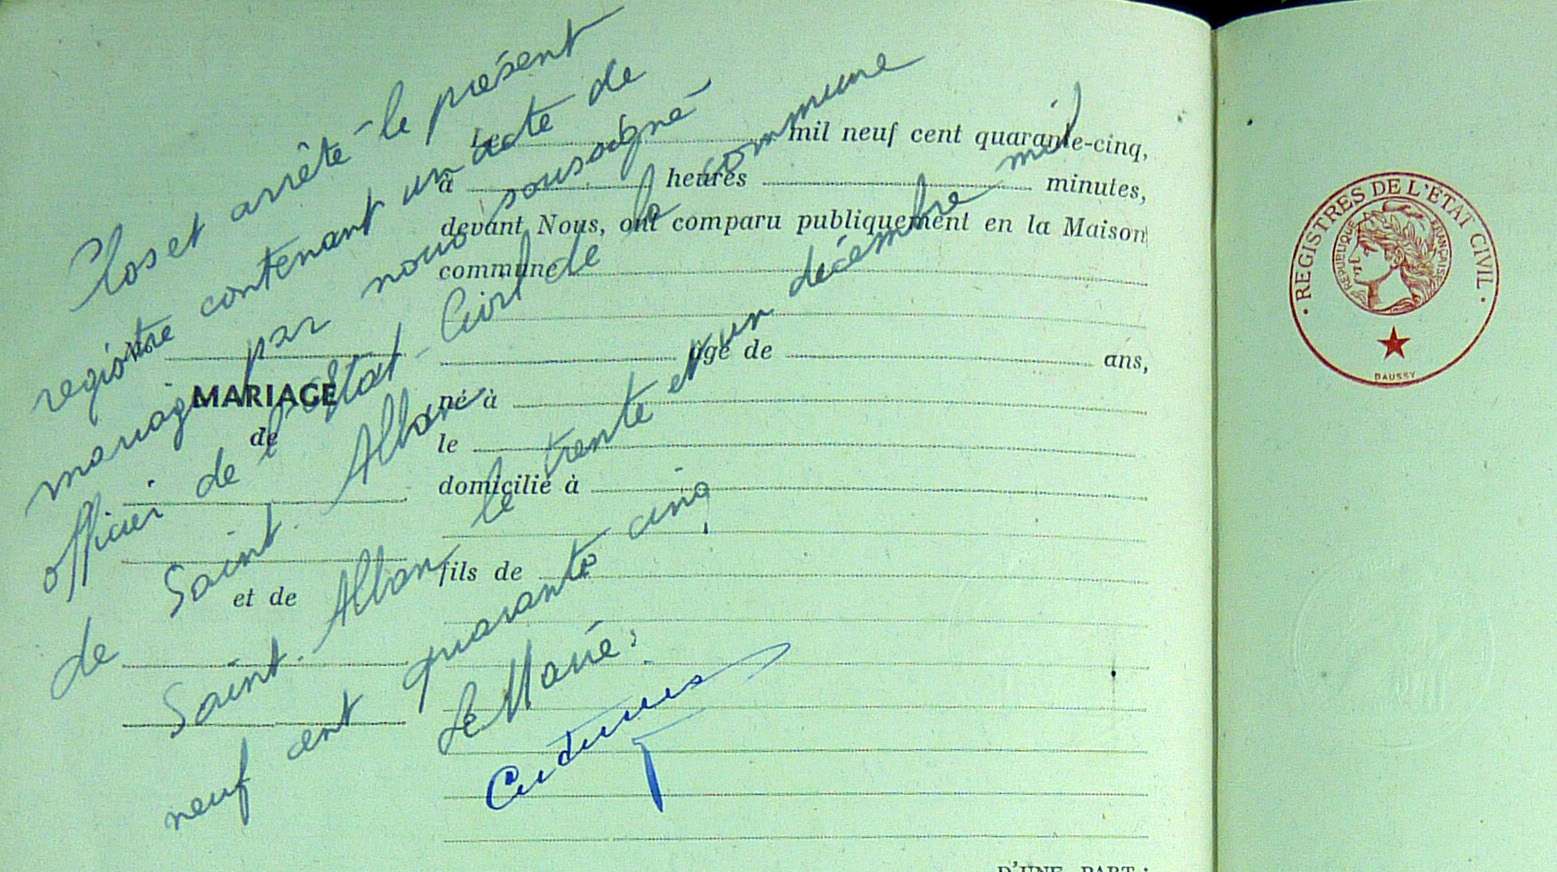 Clos et arrêté le présent
registre contenant un acte de
mariage par nous soussigné
officier de l'Etat-Civil de la commune
de Saint-Alban
Saint-Alban le trente et un décembre mil
neuf cent quarante cinq
Le Maire:
MARIAGE
de
et de
Le mil neuf cent quarante-cinq,
à heures minutes,
devant Nous, ont comparu publiquement en la Maison
commune
âgé de ans,
né à
le
domicilié à
fils de
D'UNE PART;
REGISTRES DE L'ÉTAT CIVIL
RÉPUBLIQUE FRANÇAISE
DAUSSY